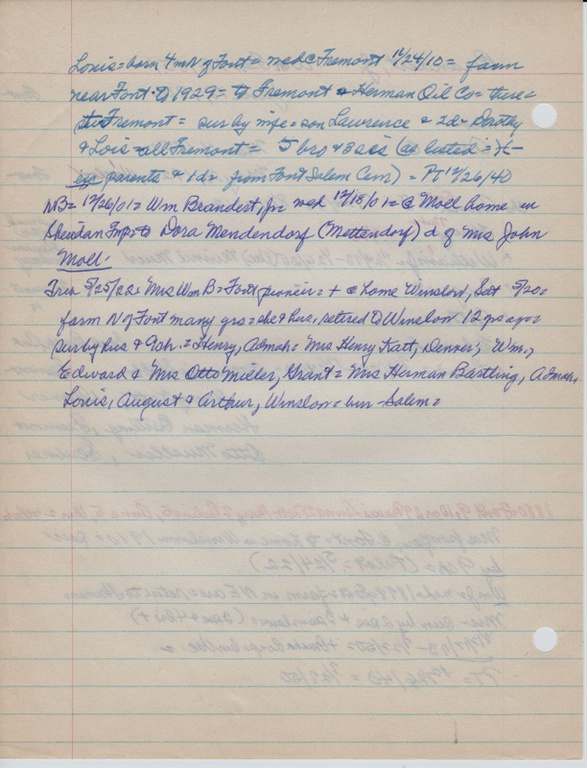 Louis = born 4 m N of Font = wed @ Fremont 11/24/10 = farm
near Font to 1929 = to Fremont & Herman Oil Co = there =
Fremont = sur by wife = son Lawrence & 2d = Dorothy
& Lois = all Fremont = 5 bro & 3 sis (as listed =
parents & 1d = from Font Salem Cem) = FT 12/26/40
NB = 12/26/01 = Wm Brandert, Jr wed 12/18/01 = @ Moell home in
Sheridan Twp to Dora Mendendorf (Mettendorf) d of Mrs John
Moll.
5/25/22 = Mrs Wm B = Font pioneer = + @ home Winslow, Sat 5/20 =
farm N of Font many yrs = she & hus, retired to Winslow 12 yrs ago =
sur by hus & 9 ch = Henry, Admah = Mrs Henry Katt, Denver, Wm.,
Edward & Mrs Otto Miller, Grant = Mrs Herman Bartling, Admah,
Louis, August & Arthur, Winslow = bur - Salem =